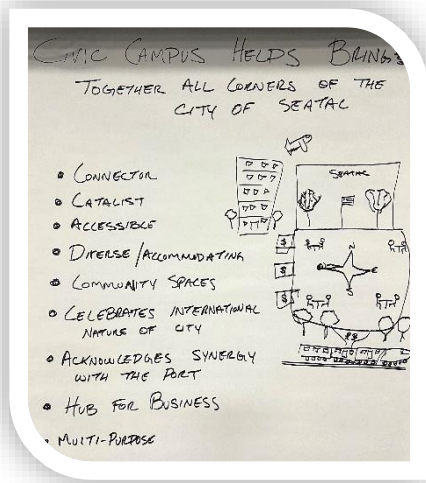 CIVIC CAMPUS HELPS BRINGS
TOGETHER ALL CORNERS OF THE
CITY OF SEATAC
• CONNECTOR
• CATALIST
• ACCESSIBLE
• DIVERSE/ACCOMMODATING
• COMMUNITY SPACES
• CELEBRATES INTERNATIONAL
NATURE OF CITY
• ACKNOWLEDGES SYNERGY
WITH THE PORT
• HUB FOR BUSINESS
• MULTI-PURPOSE
SEATAC
$
N
$
E
$
S